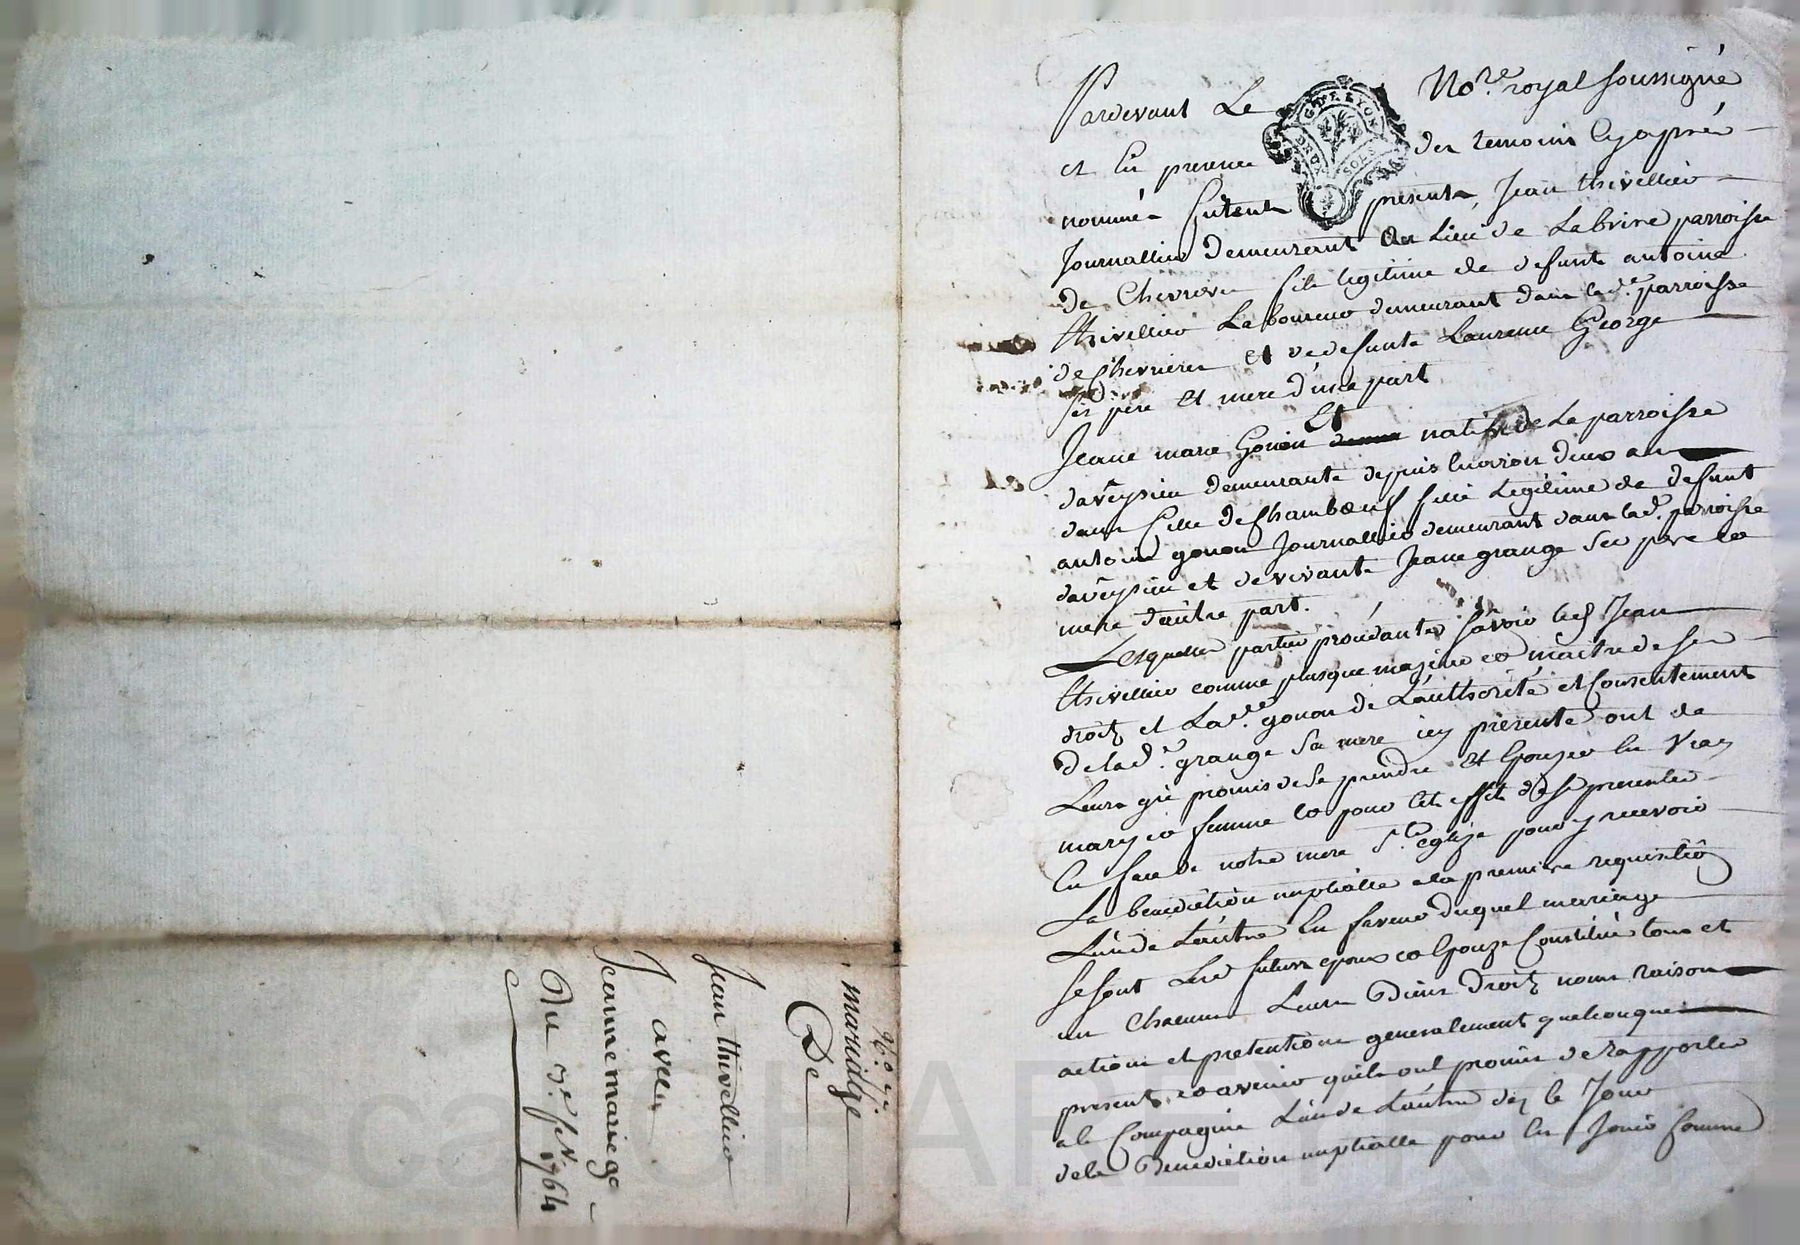 Pardevant Le No.re royal soussigné
et En presence des temoins Cy aprés
nommés furent presents, Jean thivellier
Journallier demeurant au Lieu de Labrire parroisse
de Chevrieres fils legitime de defunt antoine
thivellier Laboureur demeurant dans lad.e parroisse
de Chevrieres et de defunte Laurence George
ses pere et mere d'une part
Et
Jeane marie Gonon native de La parroisse
daveysieu demeurante depuis Environ deux ans
dans celle de Chambœuf fille Legitime de defunt
antoine gonon Journallier demeurant dans lad. parroisse
daveysieu et de vivante Jeane grange ses pere et
mere d'autre part.
Lesquelles parties procedantes sávoir led Jean
thivellier comme plusque majeur et maitre de ses
droits et La d.e gonon de L'authorité et Consentement
de la d.e grange sa mere icy presente ont de
Leurs gré promis de se prendre et Epouser En vray
mary et femme et pour cet effet de se presenter
En face de notre mere S.te eglize pour y recevoir
La benediction nuptialle a la premiere requisitiô
L'un de L'autre En faveur duquel mariage
se sont Les futurs epoux et Epouze Constitués tous et
un Chacuns Leurs Biens droits noms raisons
actions et pretentions generalement quelconques
presents et avenir quils ont promis de rapporter
a la Compagnie L'un de L'autre dez le Jour
de la Benediction nuptialle pour En Jouir comme
mariadge
De
Jean thivellier
avec
Jeanne marie go
Du 3.e fev. 1764
GEN DE LYON
DEUX SOLS